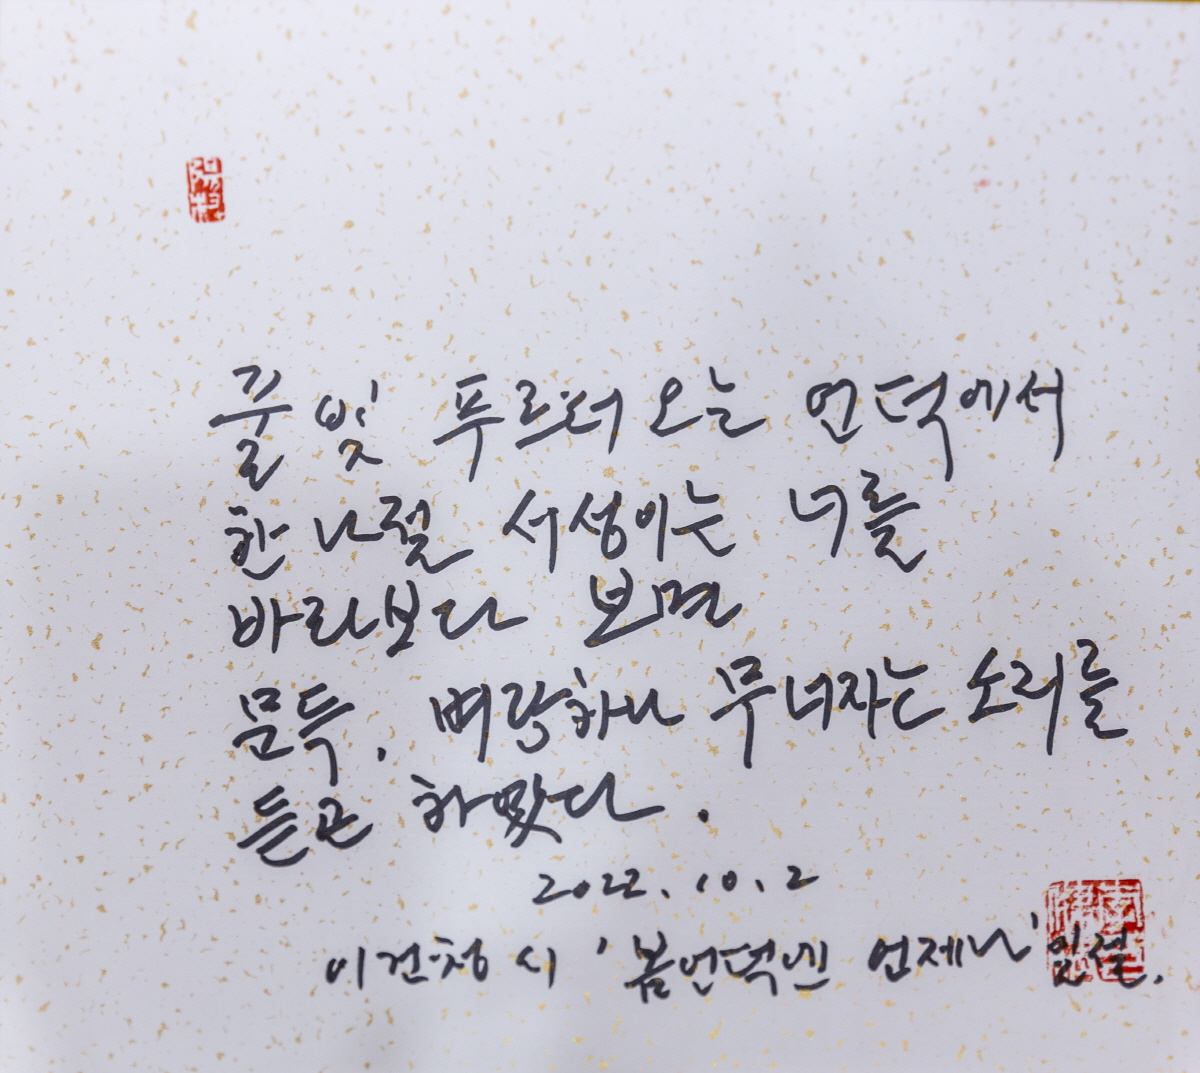 풀 빛 푸르러 오는 언덕에서
한 나절 서성이는 너를
바라보다 보면
문득, 벼랑하나 무너지는 소리를
듣곤 하였다.
2022.10.2
이건청 시 '봄언덕엔 언제나' 일절.